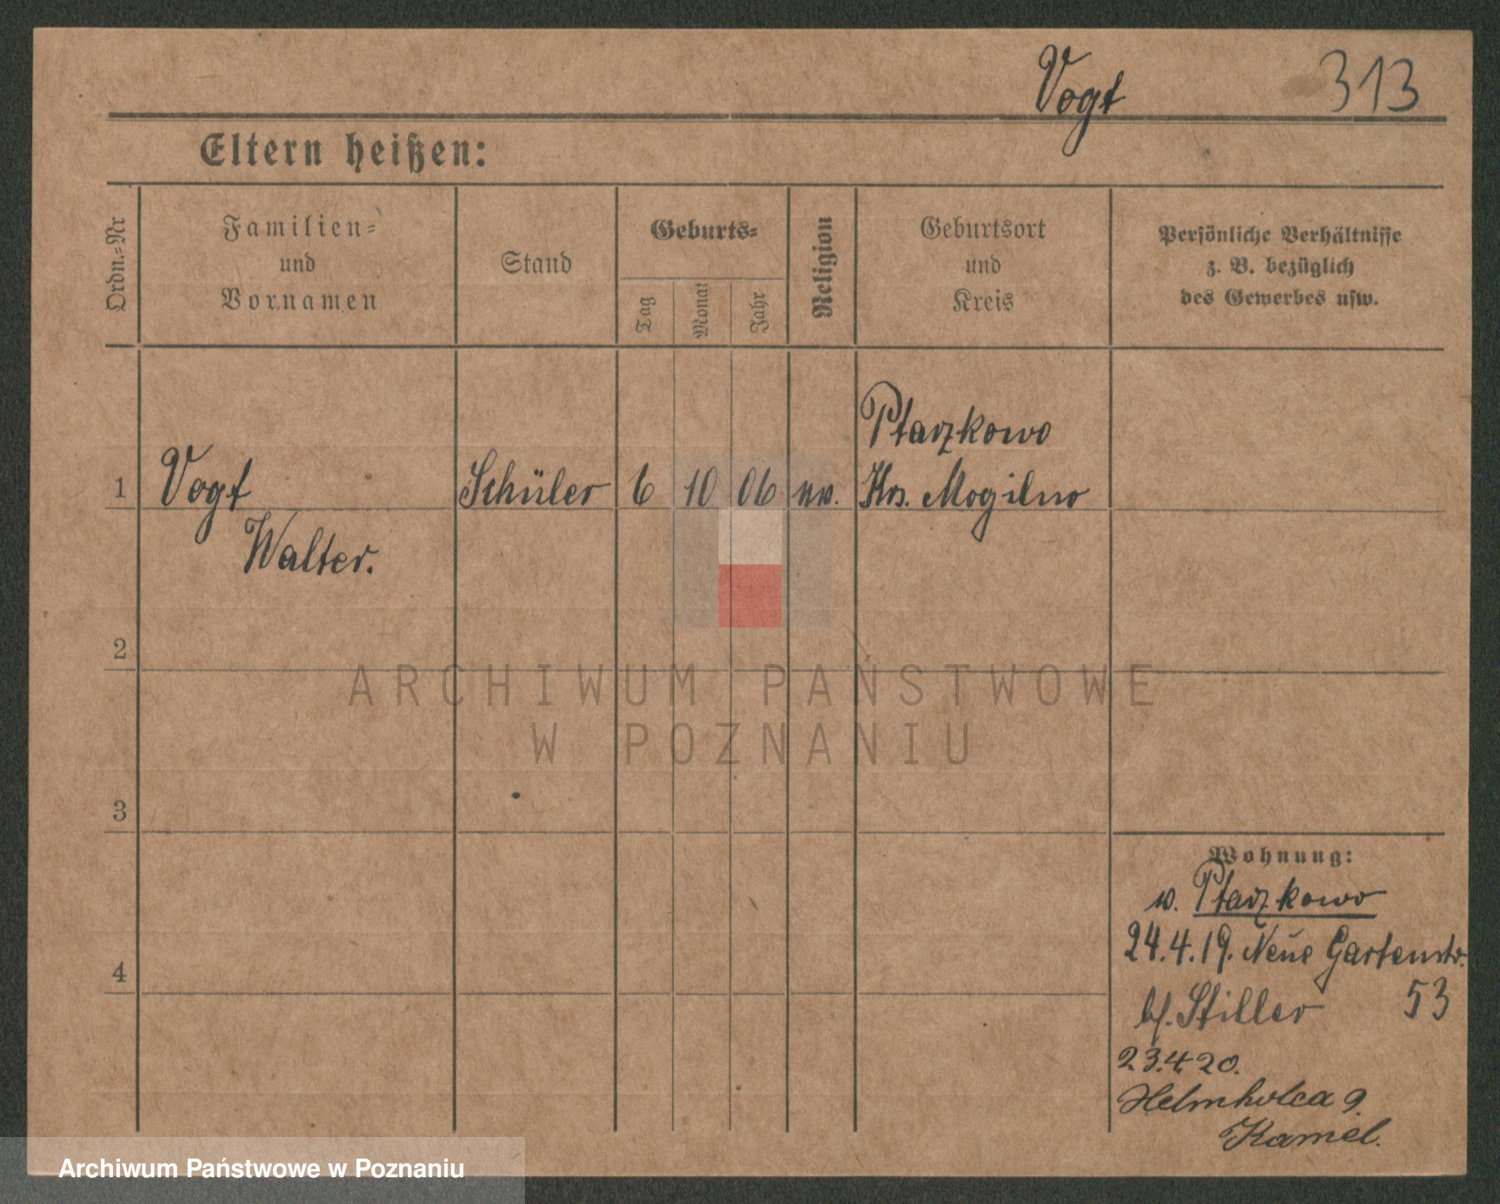 Vogt 313
Eltern heißen:
Ordn.-Nr
Familien-
und
Vornamen
Stand
Geburts-
Tag
Monat
Jahr
Religion
Geburtsort
und
Kreis
Persönliche Verhältnisse
z. B. bezüglich
des Gewerbes usw.
1
Vogt
Walter.
Schüler
6
10
06
Ptaszkowo
Krs. Mogilno
2
3
4
Wohnung:
w. Ptaszkowo
24.4.19. Neue Gartenstr.
53
b/. Stiller
23.4.20.
Helmholca 9.
Kamel.
ARCHIWUM PAŃSTWOWE
W POZNANIU
Archiwum Państwowe w Poznaniu